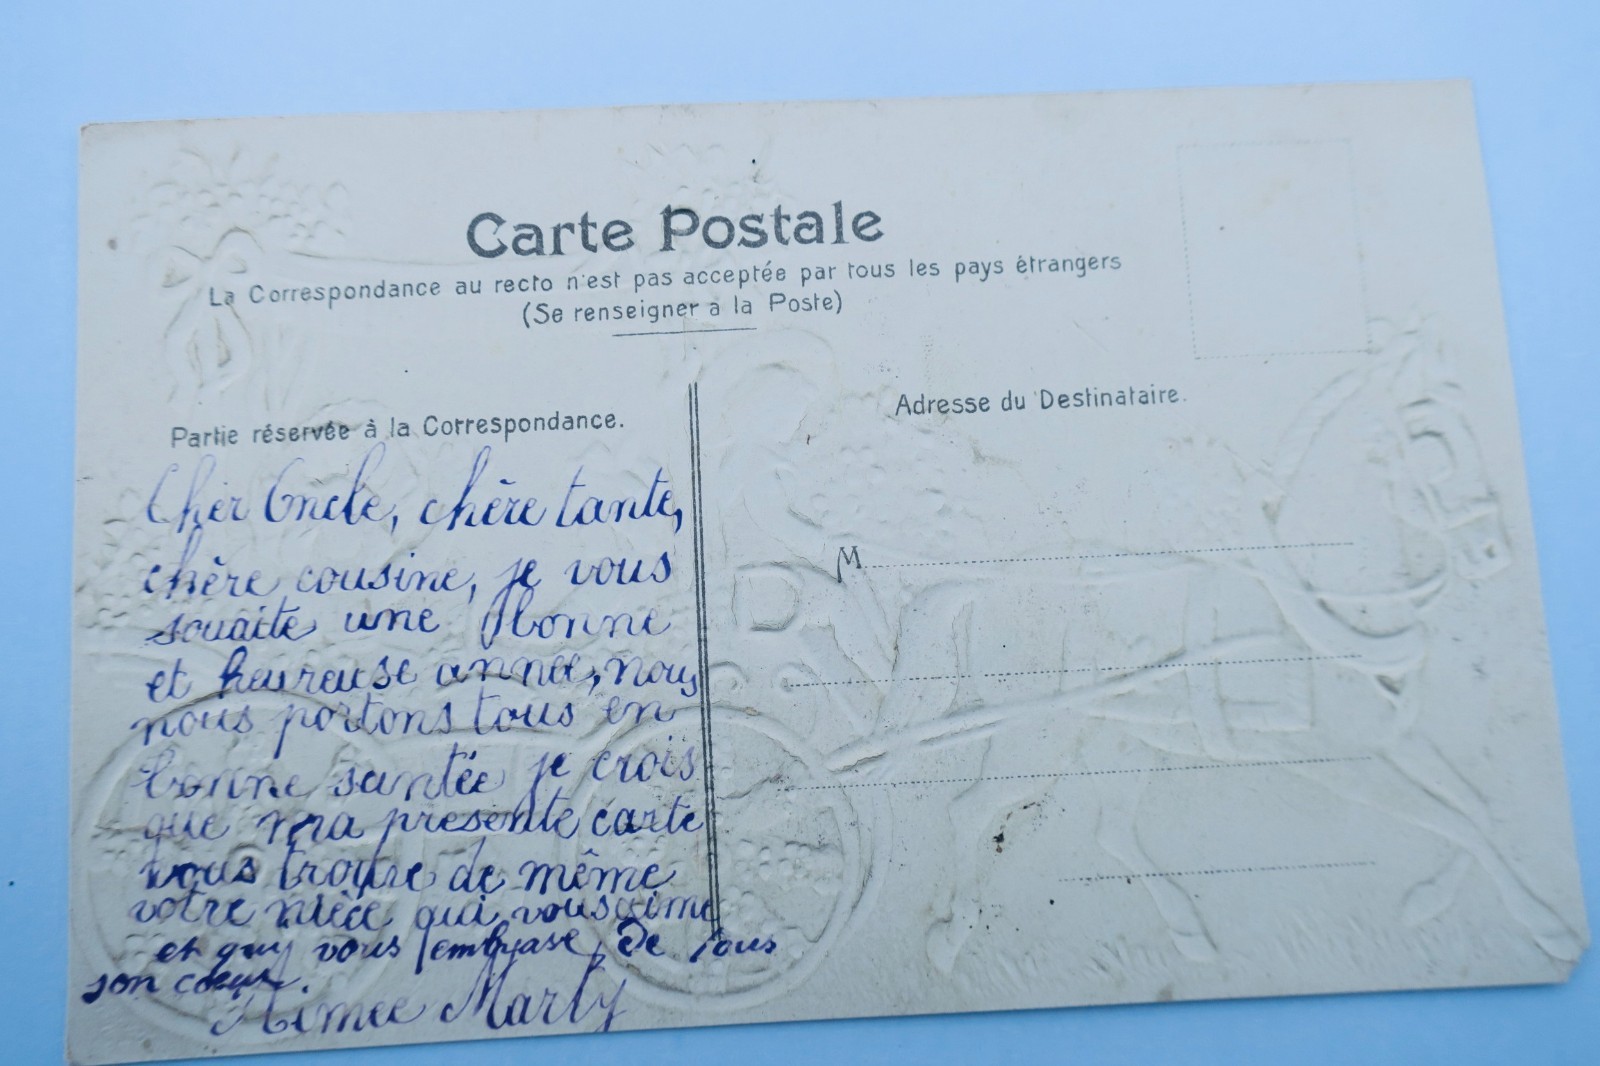 Carte Postale
La Correspondance au recto n'est pas acceptée par tous les pays étrangers
(Se renseigner à la Poste)
Partie réservée à la Correspondance.
Adresse du Destinataire.
M
Cher Oncle, chère tante,
chère cousine, je vous
souaite une bonne
et heureuse année, nous
nous portons tous en
bonne santée je crois
que ma présente carte
vous trouve de même
votre nièce qui vous aime
et qui vous embrase, De tous
son coeur.
Aimée Marty